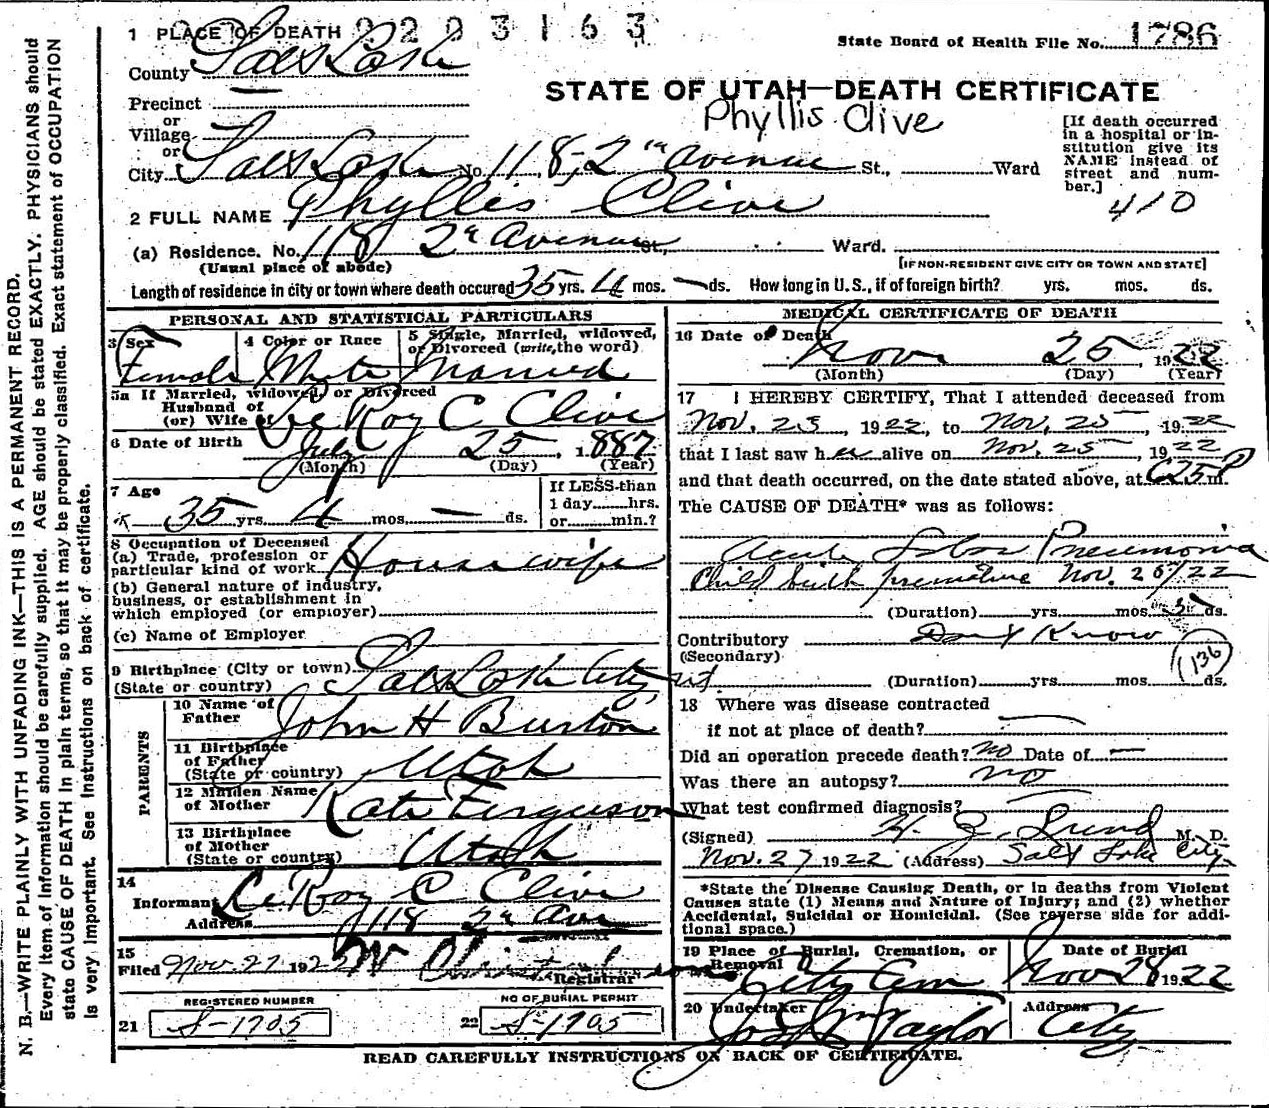 1 PLACE OF DEATH 2203163
State Board of Health File No. 1786
County Salt Lake
STATE OF UTAH—DEATH CERTIFICATE
Precinct
or
Village
or
City Salt Lake No. 118, 2nd Avenue St., Ward
Phyllis Clive
[If death occurred
in a hospital or in-
stitution give its
NAME instead of
street and num-
ber.]
410
2 FULL NAME Phyllis Clive
(a) Residence. No. 118 2nd Avenue St., Ward.
(Usual place of abode)
[IF NON-RESIDENT GIVE CITY OR TOWN AND STATE]
Length of residence in city or town where death occured 35 yrs. 4 mos. — ds. How long in U.S., if of foreign birth? yrs. mos. ds.
PERSONAL AND STATISTICAL PARTICULARS
3 Sex
Female
4 Color or Race
White
5 Single, Married, widowed,
or Divorced (write the word)
Married
5a If Married, widowed, or Divorced
Husband of
(or) Wife of LeRoy C Clive
6 Date of Birth July 25, 1887
(Month) (Day) (Year)
7 Age
35 yrs. 4 mos. — ds.
If LESS than
1 day hrs.
or min.?
8 Occupation of Deceased
(a) Trade, profession or
particular kind of work Housewife
(b) General nature of industry,
business, or establishment in
which employed (or employer)
(c) Name of Employer
9 Birthplace (City or town) Salt Lake City
(State or country) Ut
PARENTS
10 Name of
Father John H Burton
11 Birthplace
of Father
(State or country) Utah
12 Maiden Name
of Mother Kate Ferguson
13 Birthplace
of Mother
(State or country) Utah
14
Informant LeRoy C Clive
Address 118 2nd Ave
15
Filed Nov. 27 1922
Registrar
REGISTERED NUMBER
21 S-1705
NO OF BURIAL PERMIT
22 S-1705
MEDICAL CERTIFICATE OF DEATH
16 Date of Death Nov 25 1922
(Month) (Day) (Year)
17 I HEREBY CERTIFY, That I attended deceased from
Nov. 23, 1922, to Nov. 25, 1922
that I last saw her alive on Nov. 25, 1922
and that death occurred, on the date stated above, at 625 P m.
The CAUSE OF DEATH* was as follows:
Acute Lobar Pneumonia
Child birth premature Nov. 25/22
(Duration) yrs. mos. 3 ds.
Contributory Don't Know
(Secondary)
136
(Duration) yrs. mos. ds.
18 Where was disease contracted
if not at place of death? —
Did an operation precede death? No Date of —
Was there an autopsy? no
What test confirmed diagnosis?
(Signed) H. Z. Lund M. D.
Nov. 27 1922 (Address) Salt Lake City
*State the Disease Causing Death, or in deaths from Violent
Causes state (1) Means and Nature of Injury; and (2) whether
Accidental, Suicidal or Homicidal. (See reverse side for addi-
tional space.)
19 Place of Burial, Cremation, or
Removal
City Cem
Date of Burial
Nov 28 1922
20 Undertaker
Jos Wm Taylor
Address
City
READ CAREFULLY INSTRUCTIONS ON BACK OF CERTIFICATE.
N. B.—WRITE PLAINLY WITH UNFADING INK—THIS IS A PERMANENT RECORD.
Every item of information should be carefully supplied. AGE should be stated EXACTLY. PHYSICIANS should
state CAUSE OF DEATH in plain terms, so that it may be properly classified. Exact statement of OCCUPATION
is very important. See Instructions on back of certificate.